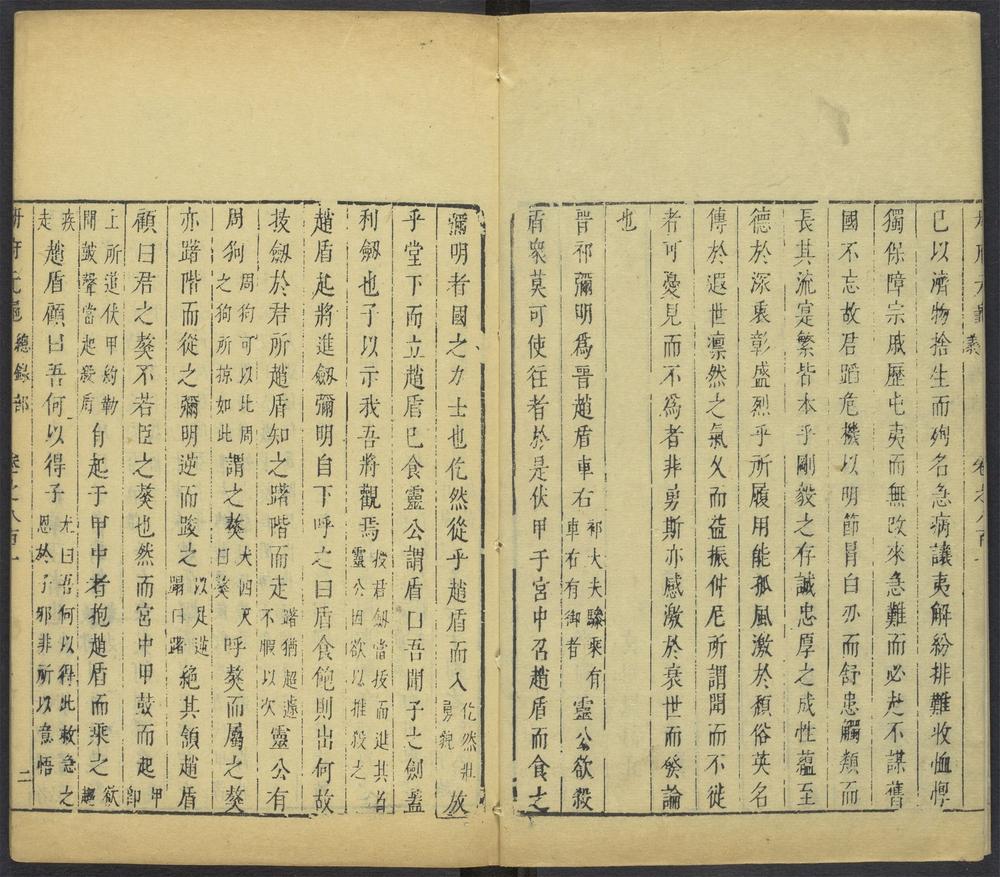 己以濟物捨生而殉名急病讓夷解紛排難收恤惸
獨保障宗戚歷屯夷而無改來急難而必赴不謀舊
國不忘故君蹈危機以明節冒白刃而舒患觸類而
長其流寔繁皆本乎剛毅之存誠忠厚之成性蘊至
德於深衷彰盛烈乎所履用能孤風激於頹俗英名
傳於遐世凛然之氣久而益振仲尼所謂聞而不徙
者可憂見而不為者非勇斯亦感激於衰世而發論
也
晉祁彌明爲晉趙盾車右祁大夫驂乘有車右有御者靈公欲殺
盾衆莫可使往者於是伏甲于宮中召趙盾而食之
彌明者國之力士也仡然從乎趙盾而入仡然壯勇貌放
乎堂下而立趙盾已食靈公謂盾曰吾聞子之劍蓋
利劍也子以示我吾將觀焉授君劍當拔而進其首靈公因欲以推殺之
趙盾起將進劍彌明自下呼之曰盾食飽則出何故
拔劍於君所趙盾知之躇階而走躇猶超遽不暇以次靈公有
周狗周狗可以比周之狗所掠如此謂之獒犬四尺曰獒呼獒而屬之獒
亦躇階而從之彌明逆而踆之以足逆躢曰踆絶其頷趙盾
顧曰君之獒不若臣之獒也然而宮中甲鼓而起甲卽
上所追伏甲約勒聞鼓聲當起殺盾有起于甲中者抱趙盾而乘之欲趨
疾走趙盾顧曰吾何以得子尤曰吾何以得此救急之恩於子邪非所以意悟
冊府元龜 總錄部 卷之八百一 二